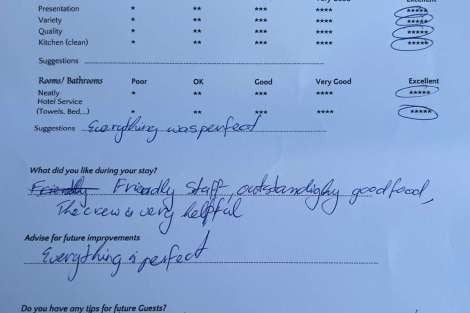 Very Good Excellent
Presentation * ** *** **** *****
Variety * ** *** **** *****
Quality * ** *** **** *****
Kitchen (clean) * ** *** **** *****
Suggestions
Rooms/ Bathrooms Poor OK Good Very Good Excellent
Neatly * ** *** **** *****
Hotel Service
(Towels, Bed,...) * ** *** **** *****
Suggestions Everything was perfect
What did you like during your stay?
Friendly Friendly Staff, outstandighy good food,
The crew is very helpful
Advise for future improvements
Everything is perfect
Do you have any tips for future Guests?